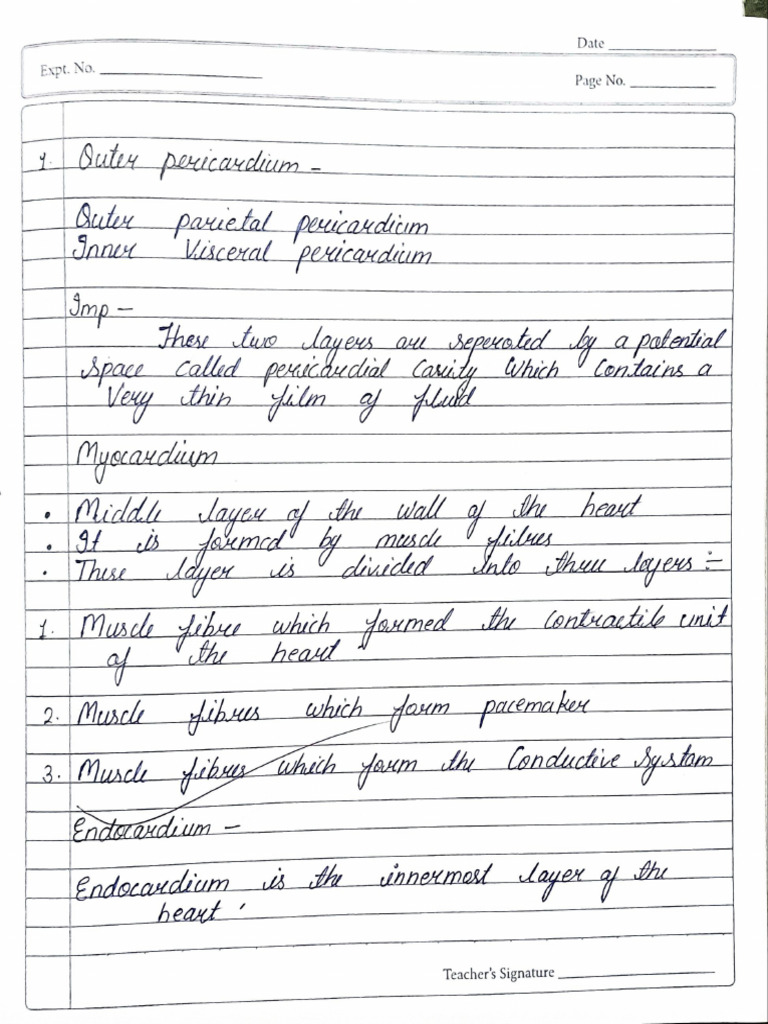 Date
Expt. No.
Page No.
1. Outer pericardium -
Outer parietal pericardium
Inner Visceral pericardium
Imp -
These two layers are seperated by a potential
space called pericardial Cavity Which Contains a
Very thin film of fluid
Myocardium
• Middle layer of the wall of the heart
• It is formed by muscle fibres
• These layer is divided into three layers :-
1. Muscle fibre which formed the contractile unit
of the heart
2. Muscle fibres which form pacemaker
3. Muscle fibres which form the Conductive System
Endocardium -
Endocardium is the innermost layer of the
heart '
Teacher's Signature